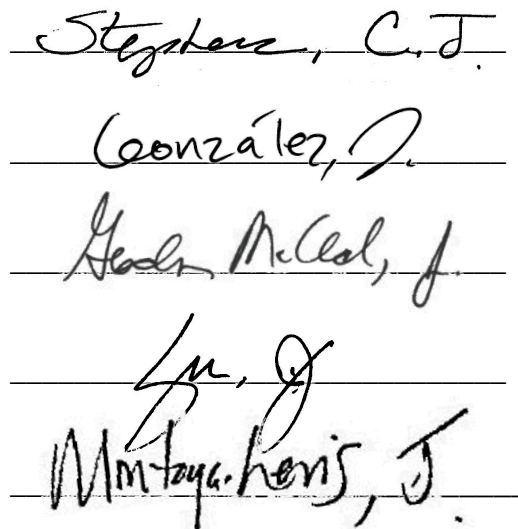 Stephens, C.J.
González, J.
Gordon McCloud, J.
Yu, J.
Montoya-Lewis, J.